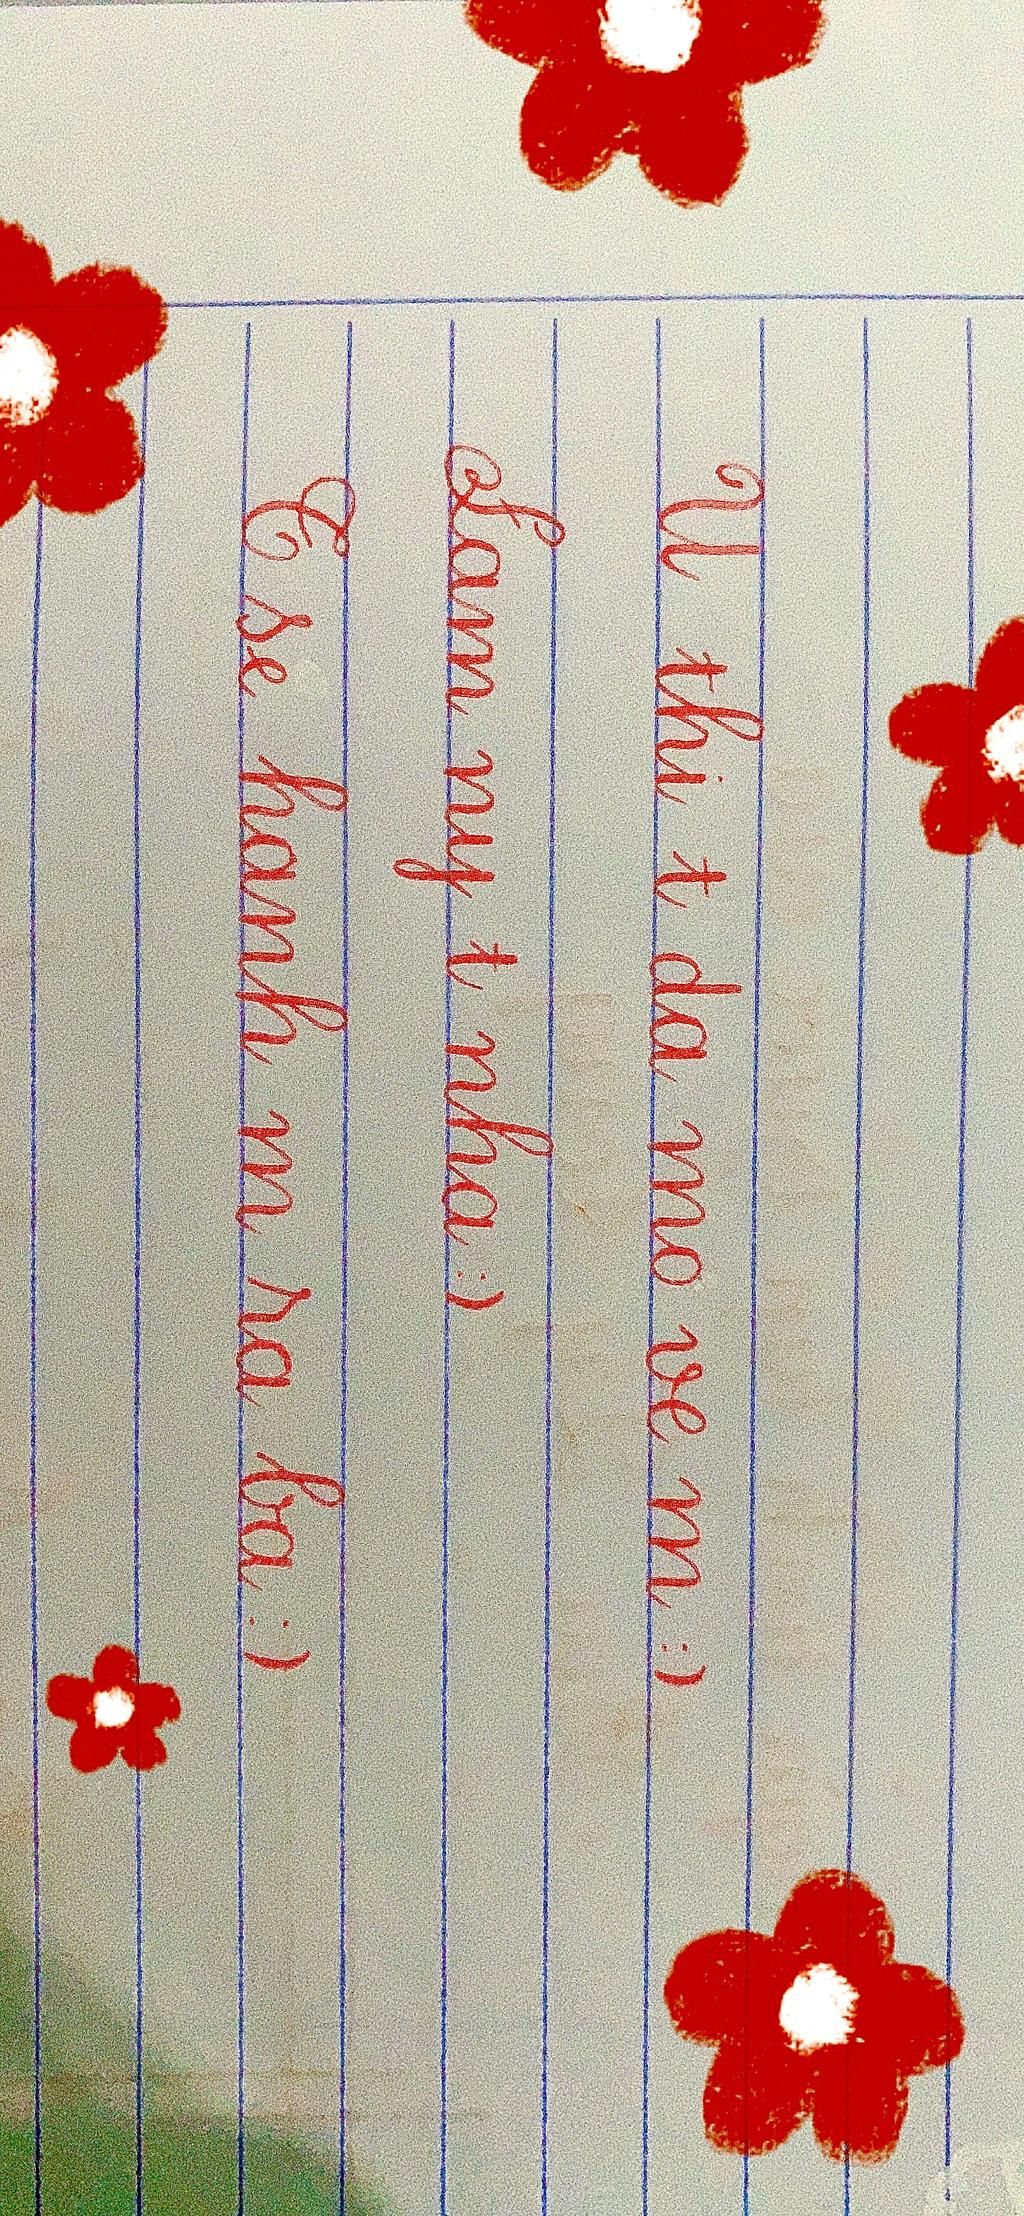 U thi t da mo ve m :)
Lam ny t nha :)
E se hanh m ra ba :)